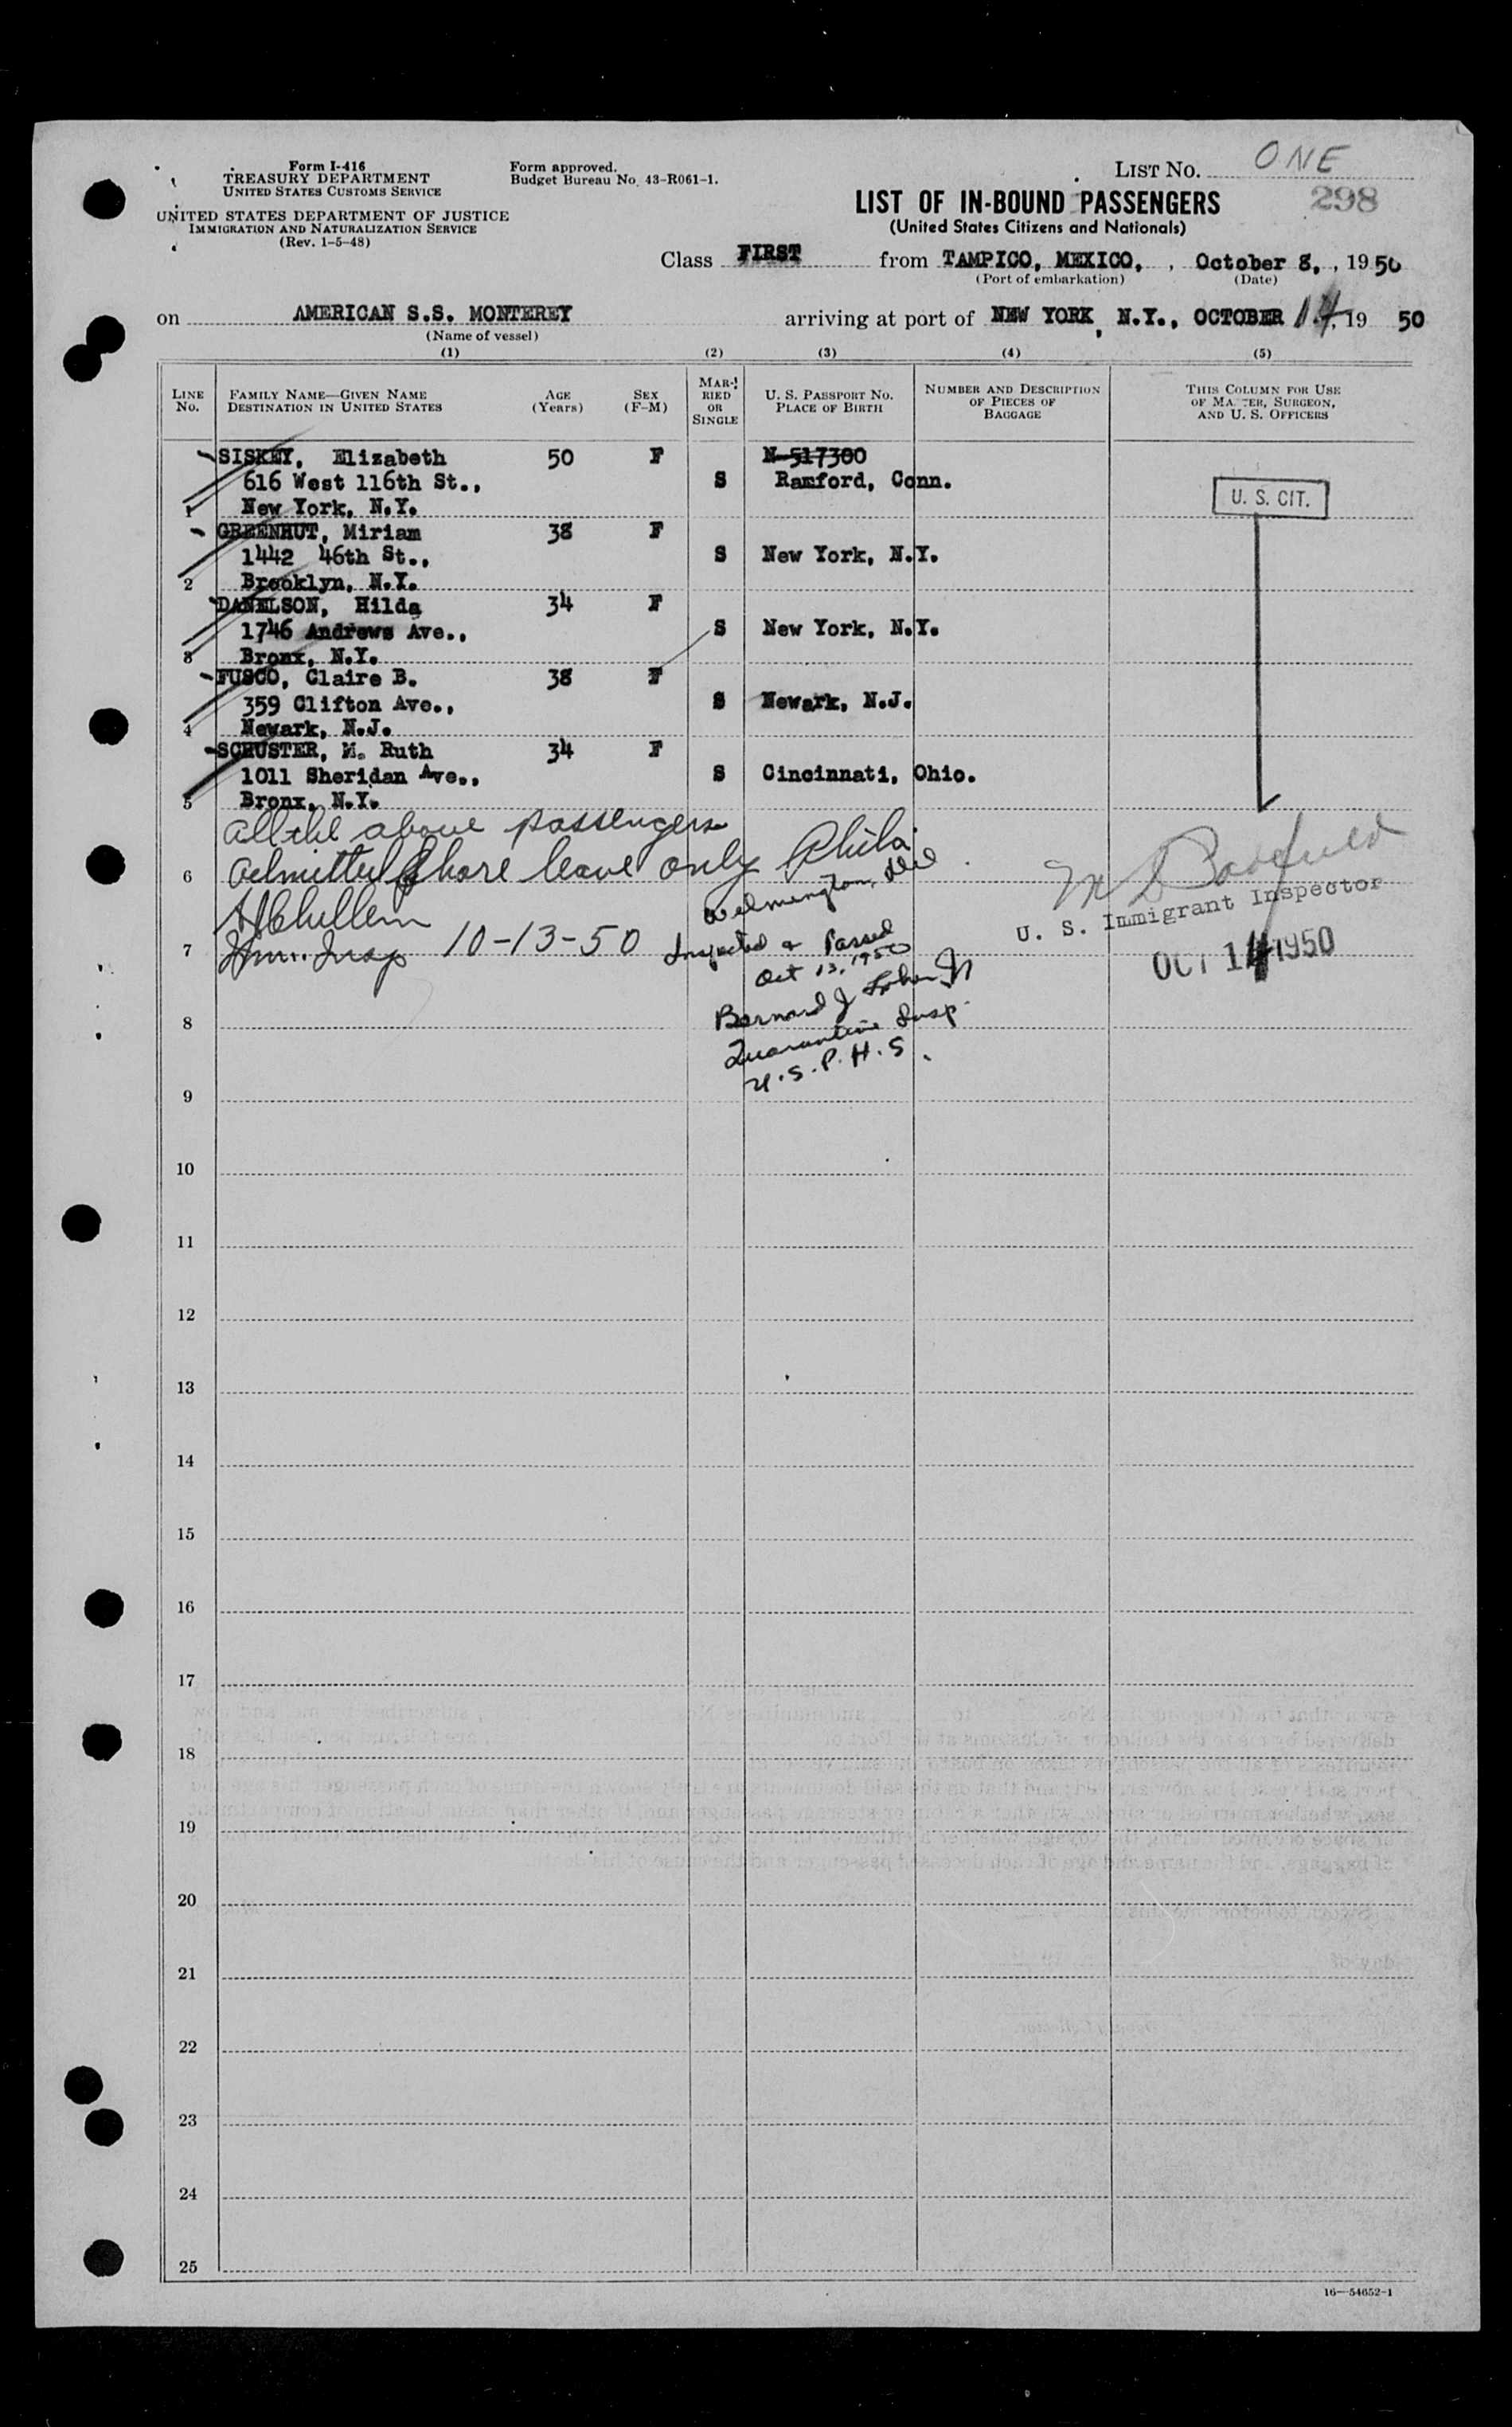 Form I-416
TREASURY DEPARTMENT
UNITED STATES CUSTOMS SERVICE
UNITED STATES DEPARTMENT OF JUSTICE
IMMIGRATION AND NATURALIZATION SERVICE
(Rev. 1-5-48)
Form approved.
Budget Bureau No. 43-R061-1.
LIST NO. ONE
298
LIST OF IN-BOUND PASSENGERS
(United States Citizens and Nationals)
Class FIRST from TAMPICO, MEXICO, , October 8, , 1950
(Port of embarkation) (Date)
on AMERICAN S.S. MONTEREY arriving at port of NEW YORK, N.Y., OCTOBER 14, 19 50
(Name of vessel)
(1) (2) (3) (4) (5)
LINE No. FAMILY NAME—GIVEN NAME DESTINATION IN UNITED STATES AGE (Years) SEX (F-M) MARRIED OR SINGLE U. S. PASSPORT NO. PLACE OF BIRTH NUMBER AND DESCRIPTION OF PIECES OF BAGGAGE THIS COLUMN FOR USE OF MASTER, SURGEON, AND U. S. OFFICERS
SISKEY, Elizabeth 50 F N-517300
616 West 116th St., S Ramford, Conn. U. S. CIT.
1 New York, N.Y.
GREENHUT, Miriam 38 F
1442 46th St., S New York, N.Y.
2 Brooklyn, N.Y.
DANELSON, Hilda 34 F
1746 Andrews Ave., S New York, N.Y.
3 Bronx, N.Y.
FUSCO, Claire B. 38 F
359 Clifton Ave., S Newark, N.J.
4 Newark, N.J.
SCHUSTER, M. Ruth 34 F
1011 Sheridan Ave., S Cincinnati, Ohio.
5 Bronx, N.Y.
All the above passengers
6 admitted Shore leave only Phila
Wilmington, Del
U. S. Immigrant Inspector
7 Imm. Insp 10-13-50 Inspected & Passed
Oct 13, 1950
OCT 14 1950
8 Bernard J
Quarantine Insp.
U.S.P.H.S.
9
10
11
12
13
14
15
16
17
18
19
20
21
22
23
24
25
16—54652-1